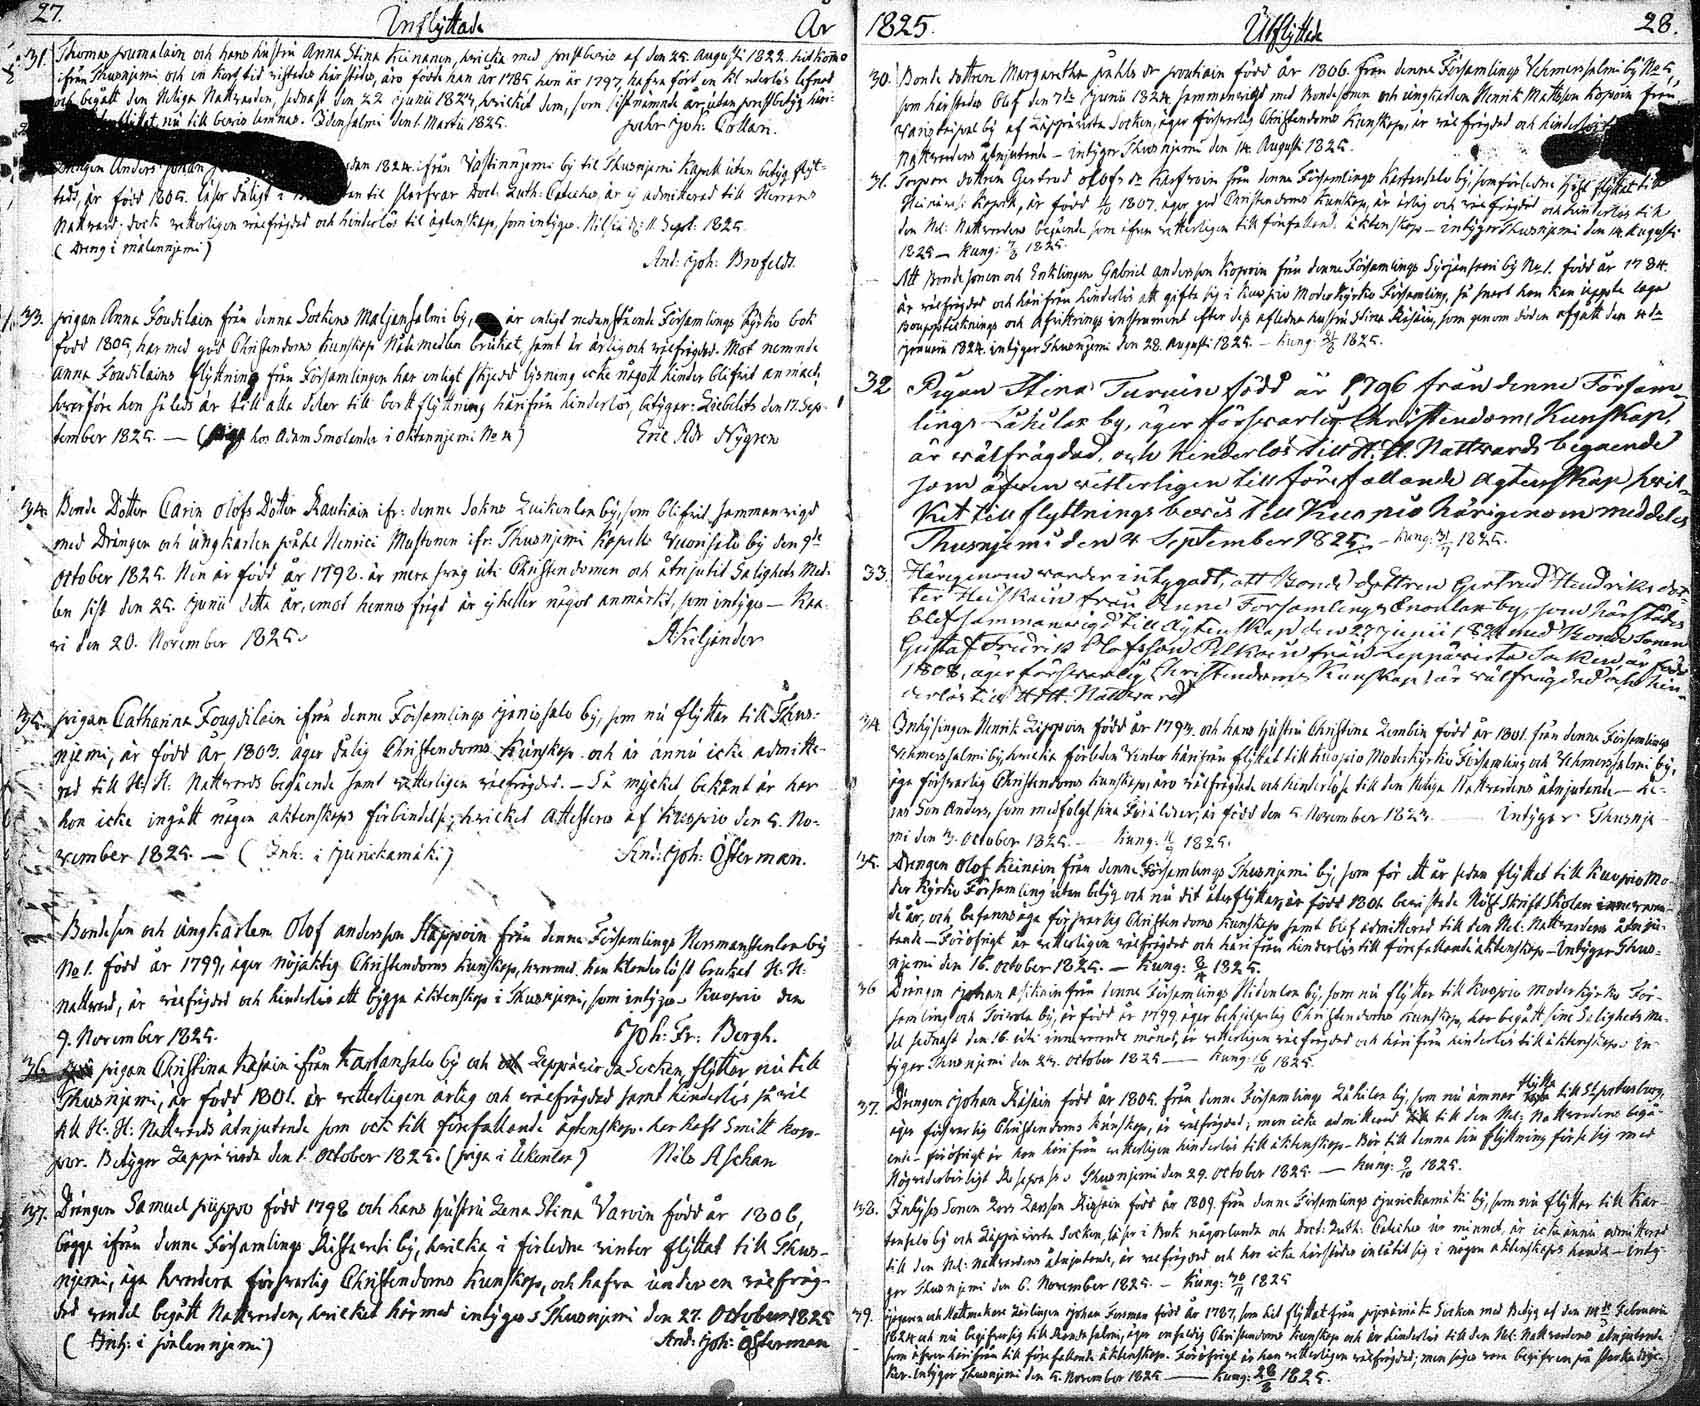 27. Inflyttade År
31. Thomas och hans hustru Anna Stina Keinänen, hvilka med prestbevis af den 25. Augusti 1822. hitkomo
ifrån Thusnjemi och en kort tid vistades härstädes, äro födde han år 1785 hon år 1797, hafva fört en lefnad
och begått den Heliga Nattvarden, sednast den 22 Junii 1824, hvilket dem, som
nu till bevis lemnas. Idensalmi den 1 Martii 1825. Joh: Cottari.
Drengen Anders 1824 ifrån Västinnjemi by til Thusnjemi Kapell utan betyg flyt-
tad, är född 1805. läser Luth: Catechis, är ej admitterad till Herrans
Nattvard; dock vetterligen välfrägdad och hinderlös til ägtenskap, som intygas. Nilsiä d: 11 Sept. 1825.
(Dreng i mälennjemi) And: Joh: Brofeldt.
33. pigan Anna Foudilain från denna Sockens Maljansalmi by, är enligt nedanstående Församlings Kyrko bok
född 1805, har med god Christendoms Kunskap Nådemedlen brukat, samt är ärlig och välfrägdad. Mot nemnde
Anna Foudilains flyttning från Församlingen har enligt skjedd lysning icke någott hinder blifvit anmäldt,
hvarföre hon således är till alla delar till bortflyttning härifrån hinderlös, betygar: Libelits den 17. Sep-
tember 1825. — (piga hos Adam Smolander i Oktannjemi No 4) Eric Adr Nygren
34. Bonde Dotter Carin Olofs Dotter Rautiain ifr: denne Sokns Luikonlax by, som blifvit sammanvigd
med Drängen och ungkarlen påhl Henrici Mustonen ifr: Thusnjemi Kapells Vuorisalo by den 9de
October 1825. Hon är född år 1792. är mera svag uti Christendomen och åtnjutit Salighets Med-
len sist den 25. Junii detta år, emot hennes frägd är ej heller något anmärkt, som intygas — Kaa-
vi den 20. November 1825. A: Kiljander
35. pigan Catharina Fougdilain ifrån denne Församlings Jänissalo by, som nu flyttar till Thus-
njemi, är född år 1803. äger dålig Christendoms Kunskap och är ännu icke admitte-
rad till H: H: Nattvards begående samt vetterligen välfrägdad. — Så mycket bekant är har
hon icke ingått någon äktenskaps förbindelse; hvilket attesteras af Kuopio den 5. No-
vember 1825. — (Inh: i Jurickamäki) And: Joh: Österman.
Bondeson och ungkarlen Olof andersson Happoin från denne Församlings Hermanstenlax by
No 1. född år 1799, äger nöjaktig Christendoms Kunskap, hvarmed han klanderlöst brukat H: H:
nattvard, är välfrägdad och hinderlös att bygga äktenskap i Thusnjemi, som intygas Kuopio den
9. November 1825. Joh: Fr: Bergh.
36. pigan Christina Kasain ifrån Kartansalo by och Leppävirda Socken, flyttar nu till
Thusnjemi, är född 1801. är vetterligen ärlig och välfrägdad samt hinderlös så väl
till H: H: Nattvards åtnjutande som ock till förefallande ägtenskap. har haft Smitt kop-
por. Betygar Leppävirda den 1. October 1825. (piga i Ukonlax) Nils Aschan
37. Drängen Samuel püppo född 1798 och hans hustru Lena Stina Varoin född år 1806,
bägge ifrån denne Församlings by, hvilka i förledne vinter flyttat till Thus-
njemi, äga hvardera försvarlig Christendoms Kunskap, och hafva under en välfräg-
dad vandel begått Nattvarden, hvilket härmed intygas Thusnjemi den 27. October 1825
(Inh: i jänlennjemi) And: Joh: Österman
1825. Utflyttade 28.
30. Bonde dottren Margaretha påhls dr poutiain född år 1806. från denne Församlings Vehmersalmi by No 5,
som härstädes blef den 7de Junii 1824 sammanvigd med Bondesonen och ungkarlen Henrik Mattsson Kopoin från
by af Leppävirta Socken, äger försvarlig Christendoms Kunskap, är väl frägdad och hinderlös
Nattvardens åtnjutande — intygar Thusnjemi den 14. Augusti 1825.
31. Torpare dottren Gertrud Olofs dr Karfvoin från denne Församlings Kartansalo by, som förledne höst flyttat till
Heinäv:s Kapell, är född 1807. äger god Christendoms Kunskap, är ärlig och välfrägdad och hinderlös till
den Hel: Nattvardens begående som äfven vetterligen till förefalland. äktenskap — intygar Thusnjemi den 14. Augusti
1825 — Kung: 1825.
Att Bondesonen och Enklingen Gabriel andersson Kopoin från denne Församlings by No 1. född år 1784.
är välfrägdad och härifrån hinderlös att gifta sig i Kuopio Moderkyrko Församling, så snart han kan uppte laga
Bouppteknings och Afvittrings instrument efter dess afledna hustru Stina Räsäin, som genom döden afgått den 4de
Januarii 1824. intygar Thusnjemi den 28. Augusti 1825. — Kung: 1825.
32. Pigan Stina Turuin född år 1796 från denne Försam-
lings Lähilax by, äger försvarlig Christendoms Kunskap,
är välfrägdad, och hinderlös till H. H. Nattvards begående
som äfven vetterligen till förefallande ägtenskap, hvil-
ket till flyttningsbevis till Kuopio härigenom meddelas
Thusnjemi den 4 September 1825. — Kung: 1825.
33. Härigenom varder intygadt, att Bonde dottren Gertrud Hendriks dot-
ter Heiskain från denne Församlings Enonlax by, som härstädes
blef sammanvigd till ägtenskap den 27 Junii 1824 med Bonde Sonen
Gustaf Fredrik Olofsson Pelkoin från Leppävirta Socken, är född
1808, äger försvarlig Christendoms Kunskap, är välfrägdad och hin-
derlös till H. H. Nattvard
34. Inhysingen Henrik Leppoin född år 1793. och hans hustru Christina Lembin född år 1801. från denne Församlings
Vehmersalmi by, hvilka förleden Vinter härifrån flyttat till Kuopio Moderkyrko Församling och Vehmersalmi by,
äga försvarlig Christendoms Kunskap, äro välfrägdade och hinderlöse till den Heliga Nattvardens åtnjutande — De-
ras Son Anders, som medföljt sina Föräldrar, är född den 5. November 1823. — Intygar Thusnje-
mi den 3. October 1825. — Kung: 1825.
35. Drengen Olof Keinäin från denne Församlings Thusnjemi by, som för ett år sedan flyttat till Kuopio Mo-
der Kyrko Församling utan betyg och nu dit återflyttar, är född 1801. bevistade Nåst Skrift Skolan innevaran-
de år, och befanns äga försvarlig Christendoms Kunskap samt blef admitterad till den Hel: Nattvardens åtnju-
tande — Föröfrigt är vetterligen välfrägdad och härifrån hinderlös till förefallande äktenskap — Intygar Thus-
njemi den 16. October 1825. — Kung: 1825.
36 Drängen Johan från denne Församlings Hidenlax by, som nu flyttar till Kuopio moderkyrko För-
samling och Toivola by, är född år 1799 äger behjelpelig Christendoms Kunskap, har begått sine Salighets me-
del sednast den 16. uti innevarande månad, är vetterligen välfrägdad och härifrån hinderlös till äktenskap. In-
tygar Thusnjemi den 23. October 1825 — Kung: 1825.
37. Drengen Johan Räsäin född år 1805. från denne Församlings Lähilax by, som nu ämnar flytta till St. petersburg,
äger försvarlig Christendoms kunskap, är välfrägdad, men icke admitterad till den Hel: Nattvardens begå-
ende — föröfrigt är han härifrån vetterligen hinderlös till äktenskap — Bör till denna sin flyttning förse sig med
Höga vederbörligt Respass Thusnjemi den 29. October 1825. — Kung: 1825.
38. Inhyses Sonen Lars Larsson Kinain född år 1809. från denne Församlings Jurickamäki by, som nu flyttar till Kar-
tansalo by och Leppävirta Socken, läser i Bok någorlunda och Doct: Luth: Catiches ur minnet, är icke ännu admitterad
till den Hel: nattvardens åtnjutande, är välfrägdad och har icke härstädes inlåtit sig i någon äktenskaps handel — Inty-
gar Thusnjemi den 6. November 1825. — Kung: 1825
39. och Hattmakare Lärlingen Johan Forsman född år 1787, som hit flyttat från Socken med Betyg af den 14de Februarii
1824 och nu begifver sig till Idensalmi, äger enfaldig Christendoms Kunskap och är hinderlös till den Hel: Nattvardens åtnjutande
som äfven härifrån till förefallande äktenskap. Föröfrigt är han vetterligen välfrägdad; men säges vara begifven på starka dryc-
ker. Intygar Thusnjemi den 5. November 1825 — Kung: 28/8 1825.